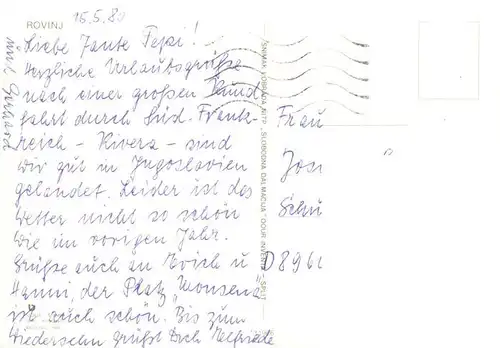 ROVINJ
15.5.80
Liebe Tante Pepi!
Herzliche Urlaubsgrüße
nach einer großen Rund
fahrt durch Süd-Frank-
reich - Rivera - sind
wir gut in Jugoslavien
gelandet. Leider ist das
Wetter nicht so schön
wie im vorigen Jahr.
Grüße auch an Erich u
Hanni, der Platz „Monsena“
ist auch schön. Bis zum
Wiedersehn grüßt Dich Helfriede
und Gerhard
Frau
Jos
Schu
D 896